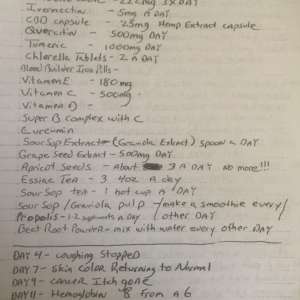 222mg 3x DAY
Ivermectin - 5mg A DAY
CBD capsule - 25mg Hemp Extract capsule
Quercitin - 500mg DAY
Tumeric - 1000mg DAY
Chlorella Tablets - 2 A DAY
Blood Builder Iron Pills -
Vitamin E - 180mg
Vitamin C - 500mg
Vitamin D -
Super B Complex with C
Curcumin
Sour Sop Extract (Graviola Extract) spoon a DAY
Grape Seed Extract - 500mg DAY
Apricot Seeds - About 3 A DAY NO more!!!
Essiac Tea - 3 4oz A day
Sour Sop tea - 1 hot cup A DAY
Sour Sop / Graviola pulp / make a smoothie every / other DAY
Propolis - 1-2 A DAY
Beet Root Powder - mix with water every other DAY
DAY 4 - coughing Stopped
DAY 7 - Skin Color Returning to Normal
DAY 9 - cancer Itch gone
DAY 11 - Hemoglobin 8 from A 6